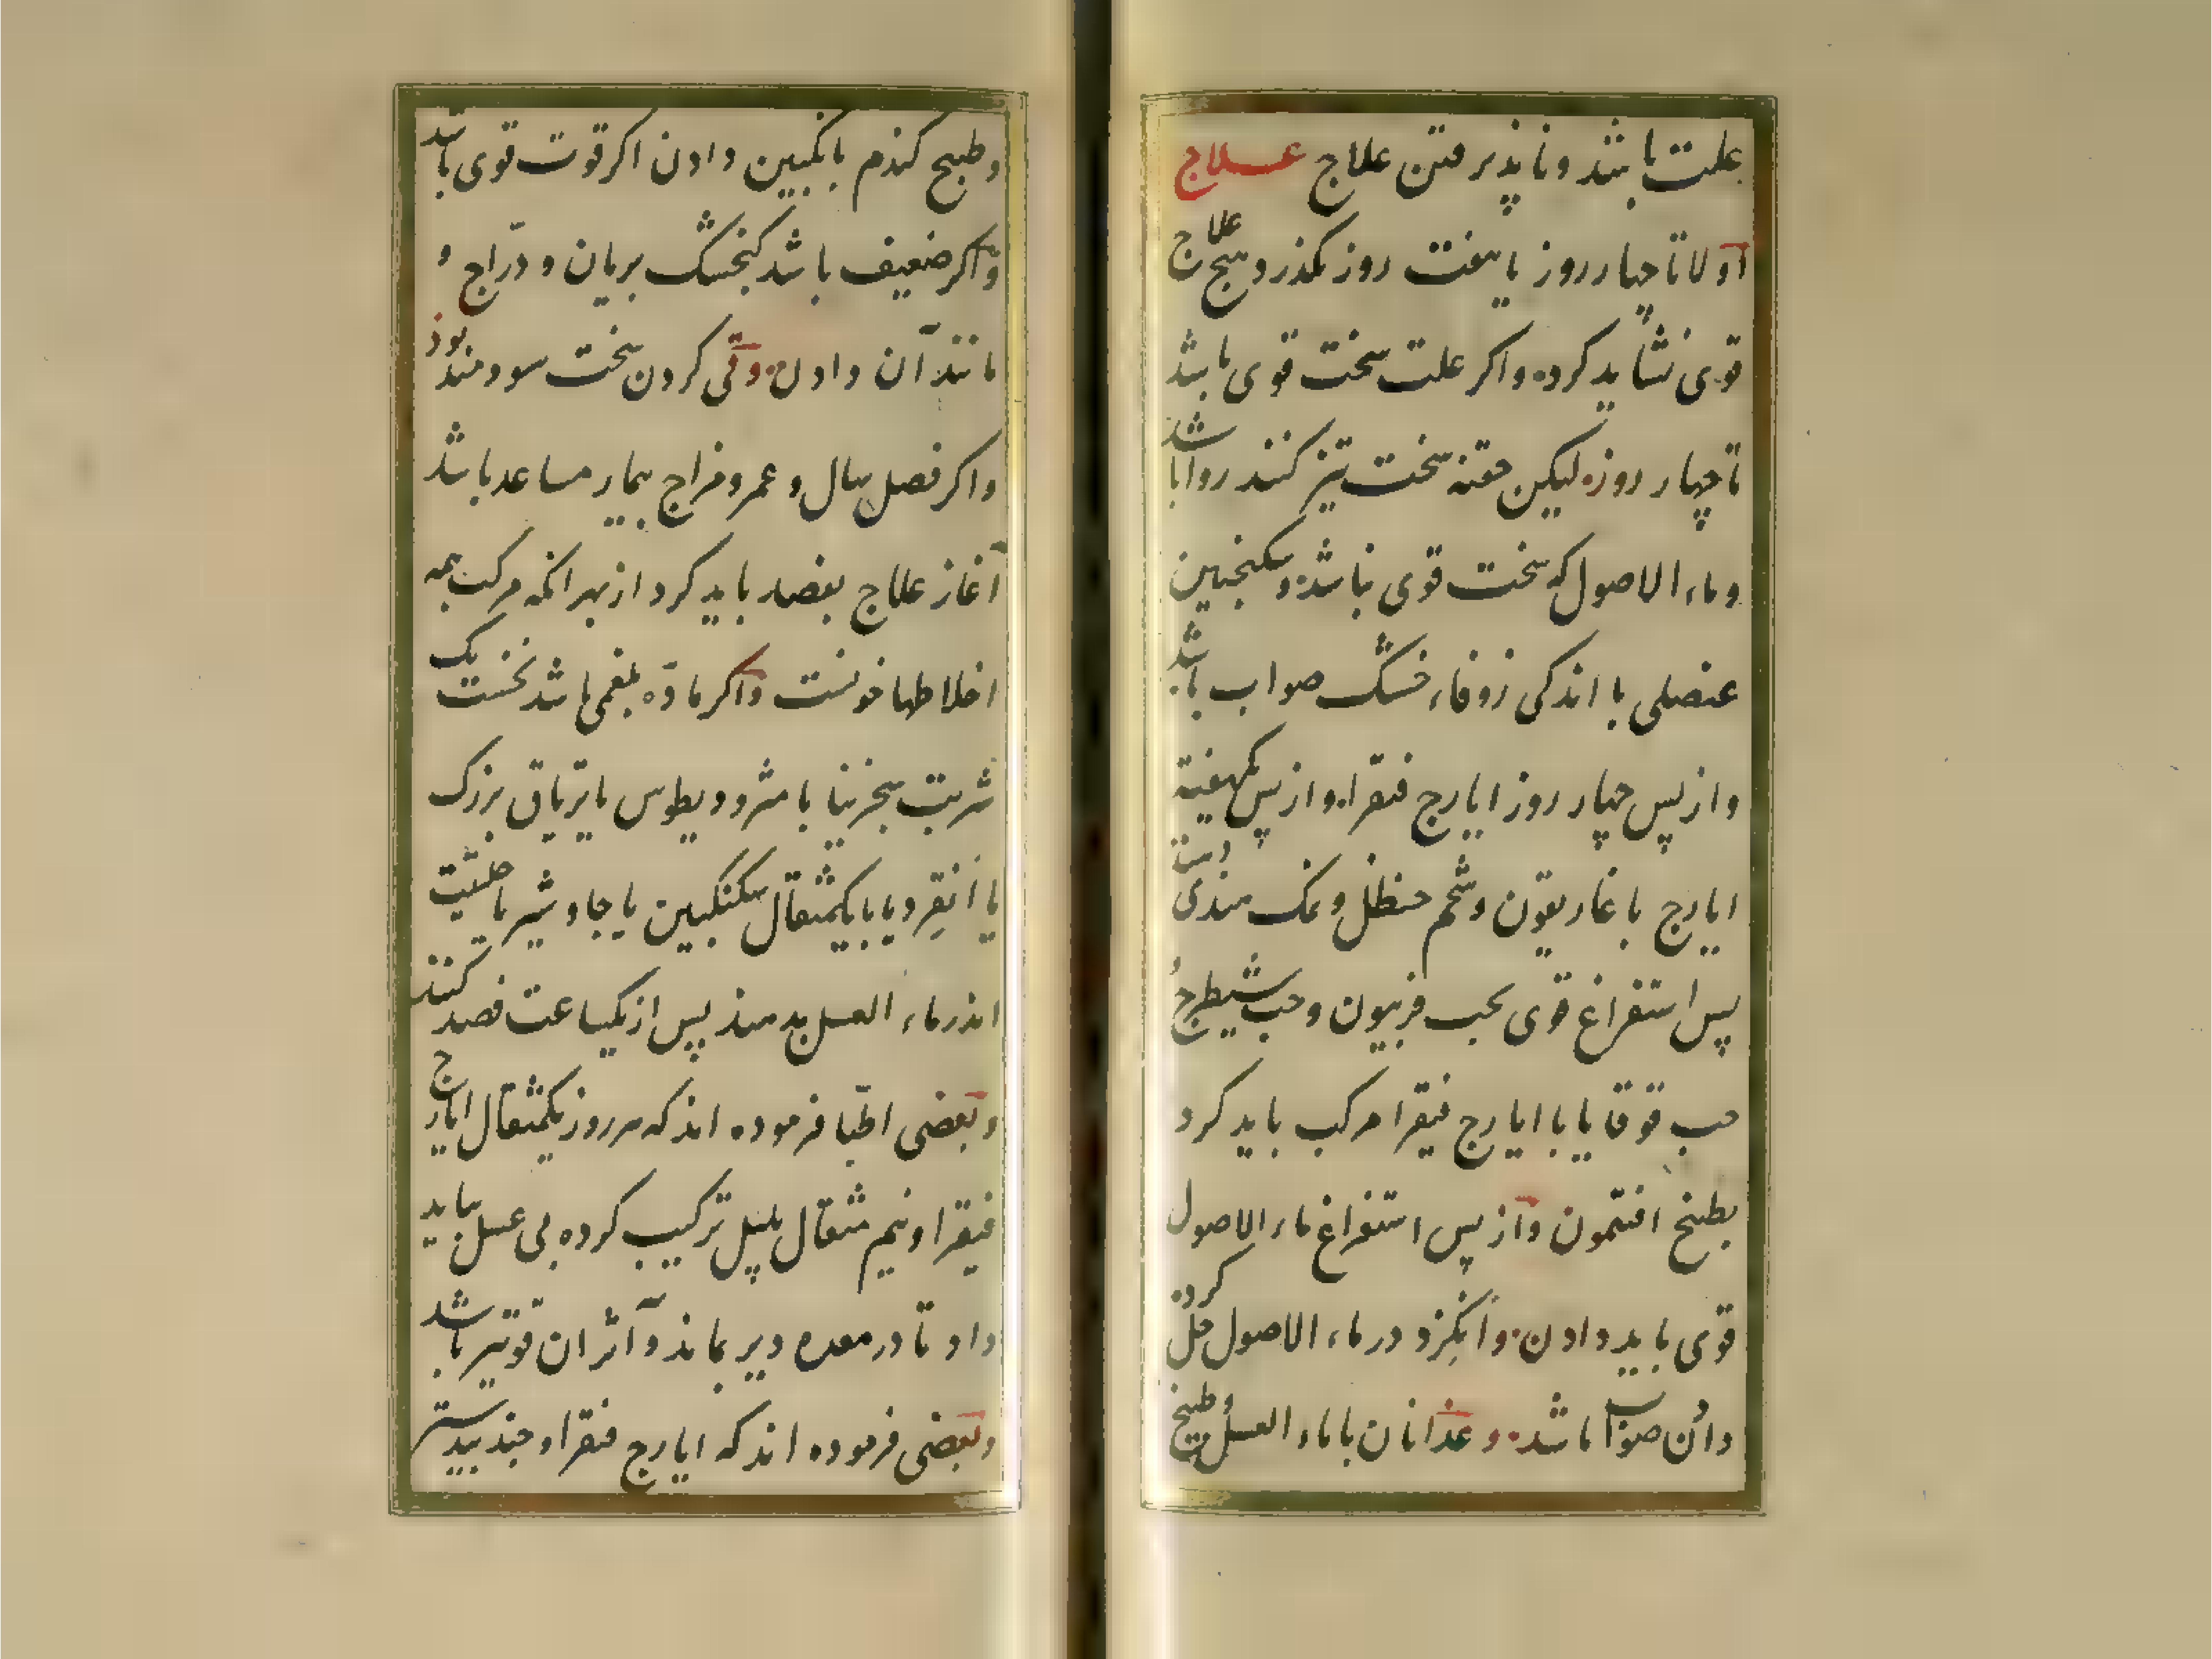 علت باشد و ناپذیرفتن علاج علاج
اولا تا چهار روز یا هفت روز بگذرد هیچ علاج
قوی نشاید کرد و اگر علت سخت قوی باشد
تا چهار روز لیکن حقنه سخت تیز کنند روا باشد
و ماء الاصول که سخت قوی نباشد و سکنجبین
عنصلی با اندکی زوفاء خشک صواب باشد
و از پس چهار روز ایارج فیقرا و از پس یکهفته
ایارج با غاریقون و شحم حنظل و نمک هندی
پس استفراغ قوی بحب فربیون و حب شیطرج و
حب قوقایا با ایارج فیقرا مرکب باید کرد
بطبیخ افتیمون و از پس استفراغ ماء الاصول
قوی باید دادن و انگزد در ماء الاصول حل کرده
دادن صواب باشد و غذا نان با ماء العسل و طبیخ
و طبیخ گندم بانگبین دادن اگر قوت قوی باشد
و اگر ضعیف باشد گنجشک بریان و درّاج و
مانند آن دادن و قی کردن سخت سودمند بوذ
و اگر فصل سال و عمر و مزاج بیمار مساعد باشد
آغاز علاج بفصد باید کرد از بهر انکه مرکب همه
اخلاطها خونست و اگر مادّه بلغمی باشد نخست یک
شربت سجزینا یا مثرودیطوس یا تریاق بزرگ
یا انقردیا با یکمثقال سکنگبین یا جاوشیر یا حلتیت
اندر ماء العسل بدهند پس از یکساعت فصد کنند
و بعضی اطبّا فرموده اند که هر روز یکمثقال ایارج
فیقرا و نیم مثقال پلپل ترکیب کرده بی عسل بباید
داد تا در معده دیر بماند و آثر ان قویتر باشد
و بعضی فرموده اند که ایارج فیقرا و جندبیدستر